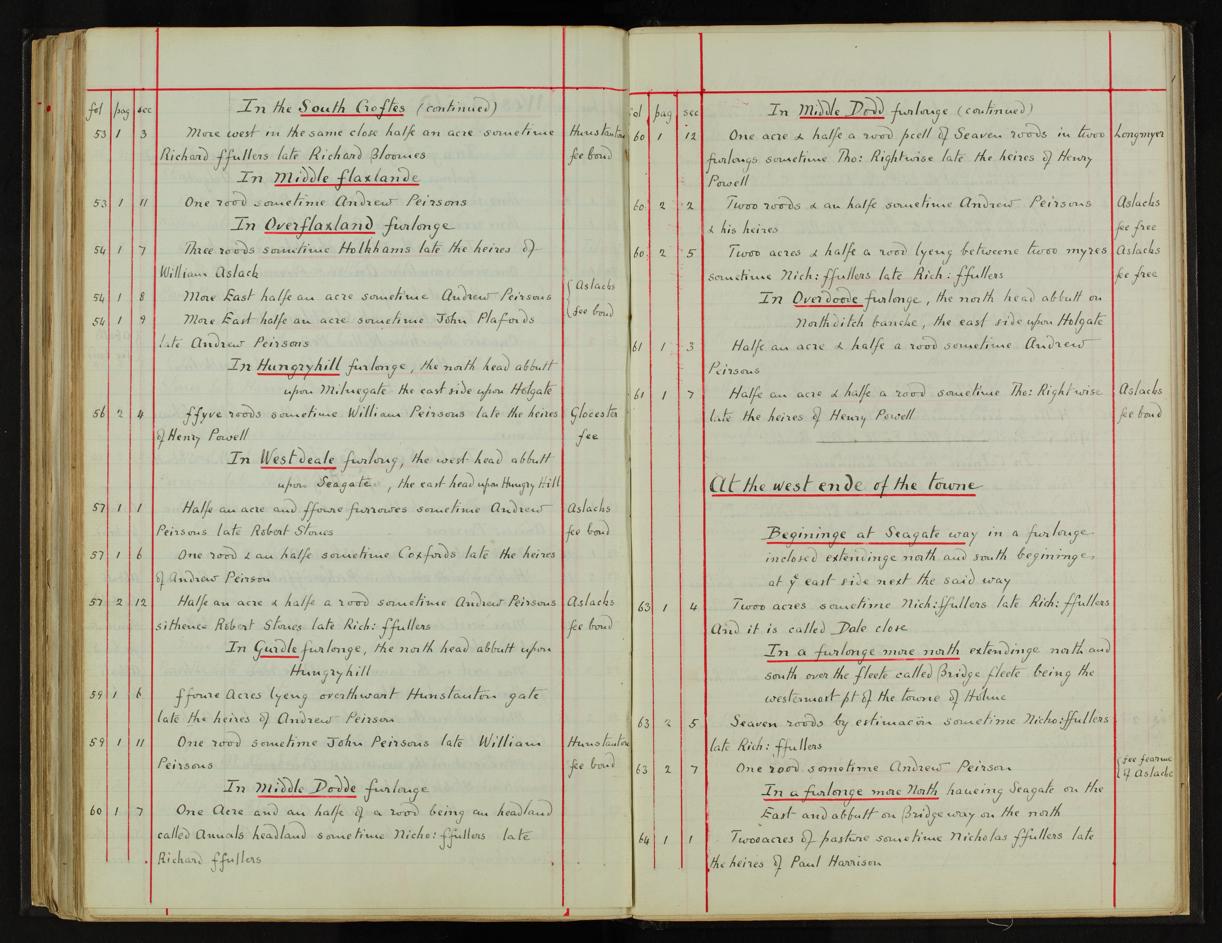 fol pag sec
In the South Croftes (continued)
53 1 3 More west in the same close halfe an acre sometime Hunstanton
Richard ffullers late Richard Bloomes fee bond
In Middle flaxlande
53 1 11 One rood sometime Andrew Peirsons
In Overflaxland furlonge
54 1 7 Three roods sometime Holkhams late the heires of
William Aslack
54 1 8 More East halfe an acre sometime Andrew Peirsons { Aslacks
54 1 9 More East halfe an acre sometime John Plafords fee bond
late Andrew Peirsons
In Hungryhill furlonge, the north head abbutt
upon Milnegate the east side upon Holgate
56 2 4 ffyve roods sometime William Peirsons late the heires Glocester
of Henry Powell fee
In Westdeale furlong, the west head abbutt
upon Seagate, the east head upon Hungry Hill
57 1 1 Halfe an acre and ffoure furrowes sometime Andrew Aslacks
Peirsons late Robert Stones fee bond
57 1 6 One rood & an halfe sometime Coxfords late the heires
of Andrew Peirson
57 2 12 Halfe an acre & halfe a rood sometime Andrew Peirsons Aslacks
sithence Robert Stones late Rich: ffullers fee bond
In Gurdle furlonge, the north head abbutt upon
Hungryhill
59 1 6 ffoure Acres lyeng overthwart Hunstanton gate
late the heires of Andrew Peirson
59 1 11 One rood sometime John Peirsons late William Hunstanton
Peirsons fee bond
In Middle Dodde furlonge
60 1 7 One Acre and an halfe of a rood being an headland
called Annals headland sometime Nicho: ffullers late
Richard ffullers
fol pag sec
In Middle Dodd furlonge (continued)
60 1 12 One acre & halfe a rood pcell of Seaven roods in twoo Longmyer
furlongs sometime Tho: Rightwise late the heires of Henry
Powell
60 2 2 Twoo roods & an halfe sometime Andrew Peirsons Aslacks
& his heires fee free
60 2 5 Twoo acres & halfe a rood lyeng betweene twoo myres Aslacks
sometime Nich: ffullers late Rich: ffullers fee free
In Overdoode furlonge, the north head abbutt on
Northditch bancke, the east side upon Holgate
61 1 3 Halfe an acre & halfe a rood sometime Andrew
Peirsons
61 1 7 Halfe an acre & halfe a rood sometime Tho: Rightwise Aslacks
late the heires of Henry Powell fee bond
At the west ende of the towne
Begininge at Seagate way in a furlonge
inclosed extendinge north and south begininge
at yᵉ east side next the said way
63 1 4 Twoo acres sometime Nich: ffullers late Rich: ffullers
And it is called Dale close
In a furlonge more north extendinge north and
south over the fleete called Bridge fleete being the
westermost pt of the towne of Holme
63 2 5 Seaven roods by estimacōn sometime Nicho: ffullers
late Rich: ffullers
63 2 7 One rood sometime Andrew Peirson { fee fearme
of Aslacke
In a furlonge more North haueing Seagate on the
East and abbutt on Bridgeway on the north
64 1 1 Twoo acres of pasture sometime Nicholas ffullers late
the heires of Paul Harrison